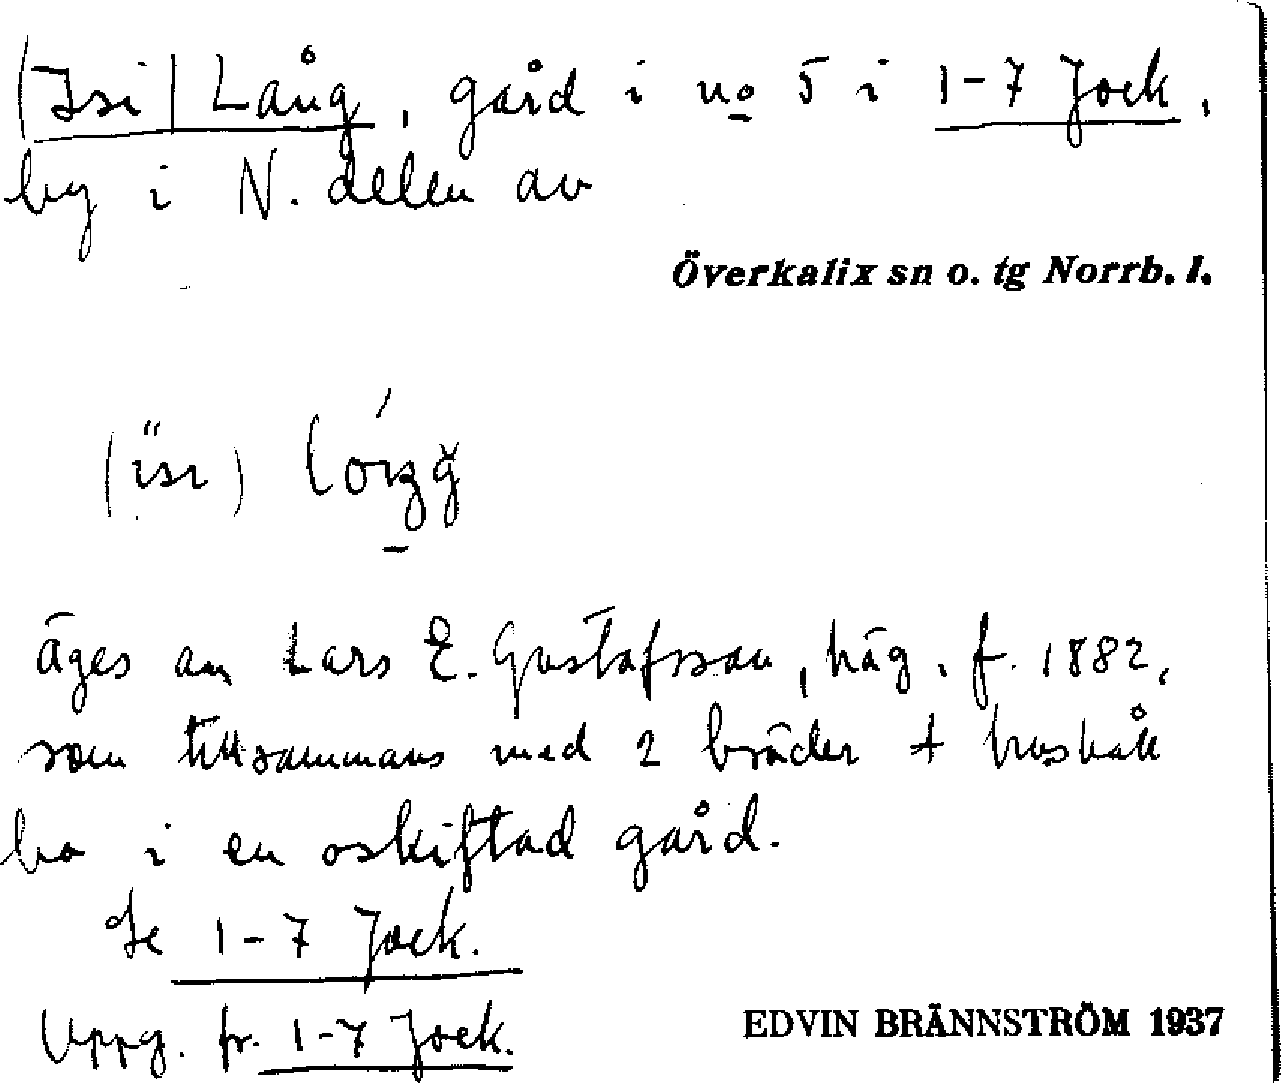 (Isi) Lång, gård i no 5 i 1-7 Jock,
by i N. delen av
Överkalix sn o. tg Norrb. l.
äges av Lars E. Gustafsson, häg. f. 1882,
som tillsammans med 2 bröder + hushåll
bo i en oskiftad gård.
Se 1-7 Jock.
Uppg. fr. 1-7 Jock.
EDVIN BRÄNNSTRÖM 1937